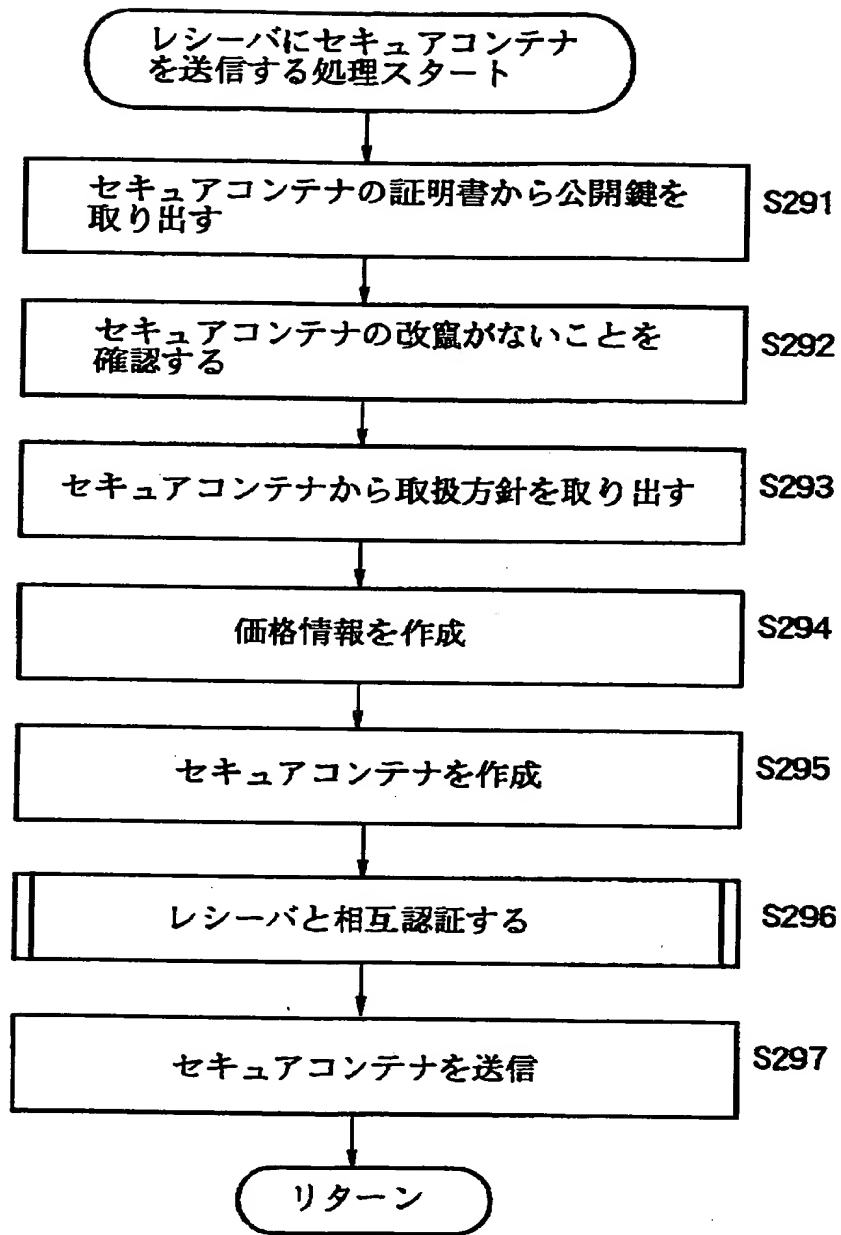 レシーバにセキュアコンテナ
を送信する処理スタート
セキュアコンテナの証明書から公開鍵を
取り出す
S291
セキュアコンテナの改竄がないことを
確認する
S292
セキュアコンテナから取扱方針を取り出す
S293
価格情報を作成
S294
セキュアコンテナを作成
S295
レシーバと相互認証する
S296
セキュアコンテナを送信
S297
リターン